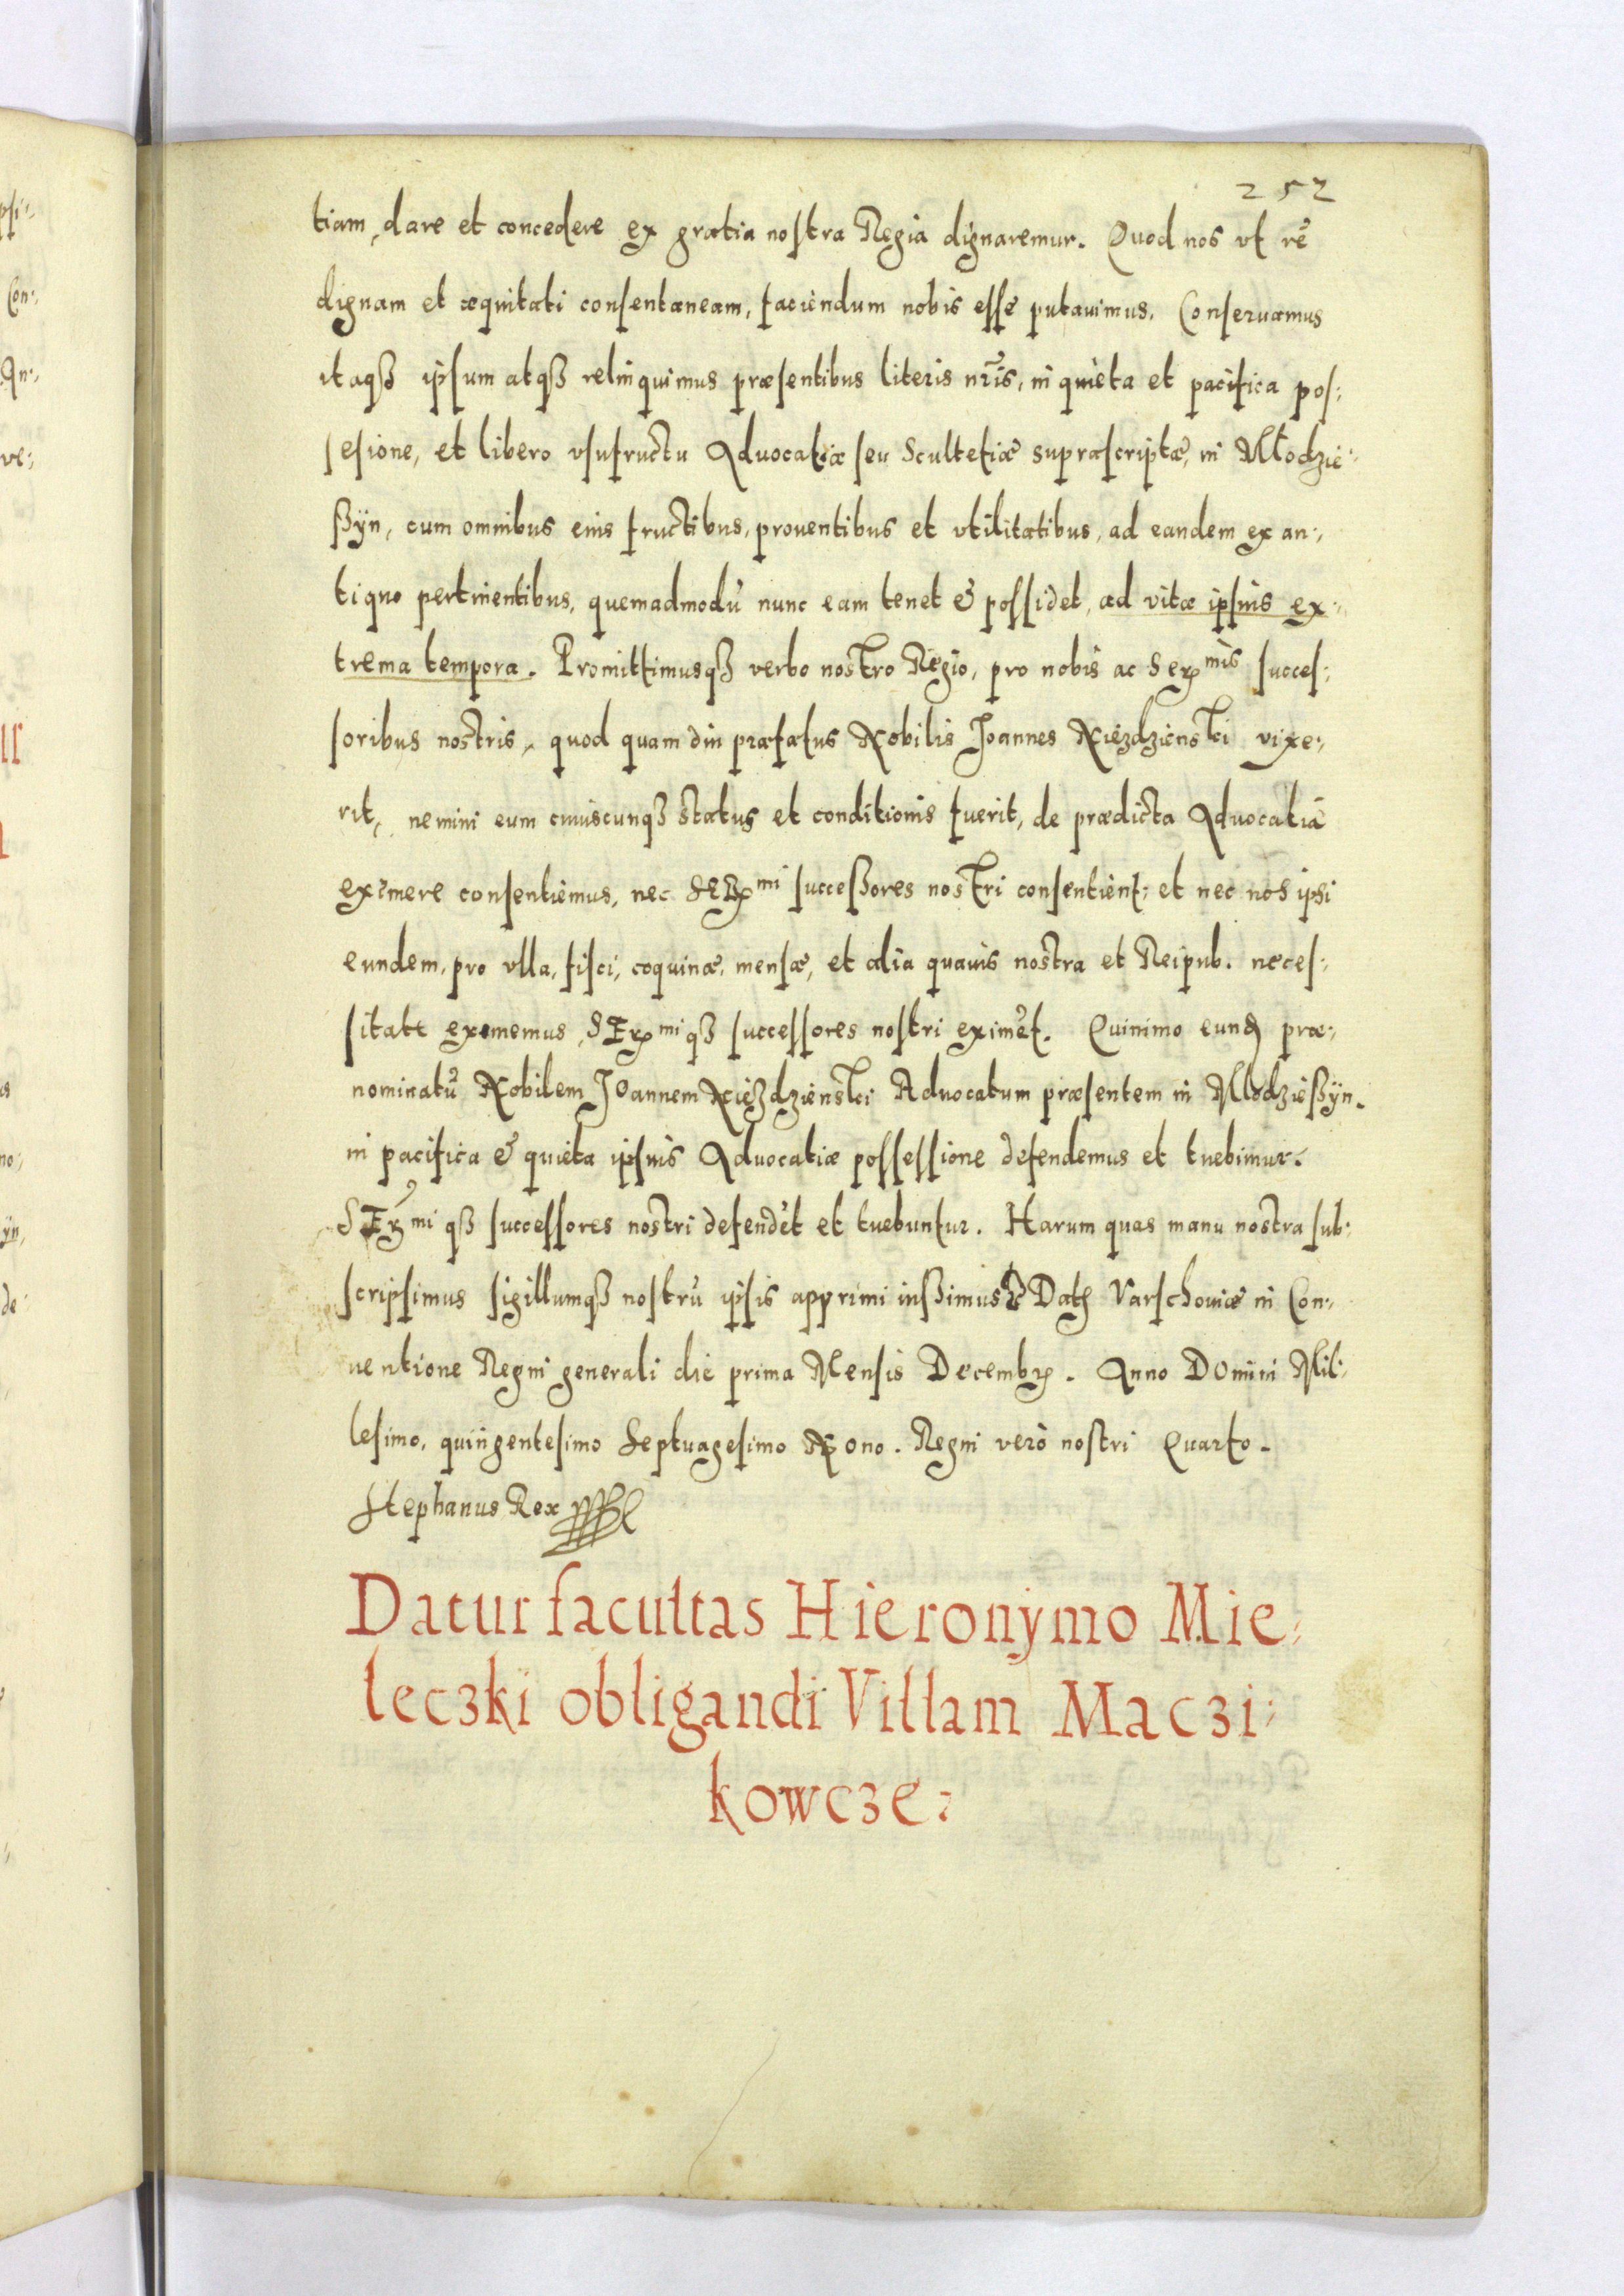 252
tiam, dare et concedere ex gratia nostra Regia dignaremur. Quod nos vt rē
dignam et æquitati consentaneam, faciendum nobis esse putauimus. Conseruamus
itaqȝ ipsum atqȝ relinquimus præsentibus literis nr̄is, in quieta et pacifica pos:
sesione, et libero vsufructu Aduocatiæ seu Scultetiæ supræscriptæ, in Młodzie:
ßÿn, cum omnibus eius fructibus, prouentibus et vtilitatibus, ad eandem ex an:
tiquo pertinentibus, quemadmodū nunc eam tenet & possidet, ad vitæ ipsius ex:
trema tempora. Promittimusqȝ verbo nostro Regio, pro nobis ac Serꝫmis succes:
soribus nostris, quod quam diu præfatus Nobilis Joannes Niezdzienski vixe:
rit, nemini eum cuiuscunqȝ status et conditionis fuerit, de prædicta Aduocatiā
eximere consentiemus, nec SERmi succeßores nostri consentient: et nec nos ipsi
eundem, pro vlla, fisci, coquinæ, mensæ, et alia quauis nostra et Reipub. neces:
sitate exememus, SERmiqȝ successores nostri eximēt. Quinimo eundꝫ præ:
nominatū Nobilem Joannem Niezdzienski Aduocatum præsentem in Młodzießÿn.
in pacifica & quieta ipsius Aduocatiæ possessione defendemus et tuebimur.
SERmiqȝ successores nostri defendēt et tuebuntur. Harum quas manu nostra sub:
scripsimus sigillumqȝ nostrū ipsis apprimi iußimus Datꝫ Varschouiæ in Con:
uentione Regni generali die prima Mensis Decembrꝫ. Anno DOmini Mil:
lesimo, quingentesimo Septuagesimo Nono. Regni verò nostri Quarto.
Stephanus Rex
Datur facultas Hieronÿmo Mie:
leczki obligandi Villam Maczi:
kowcze:
psi:
Con:
An:
ve:
no:
ÿn,
de